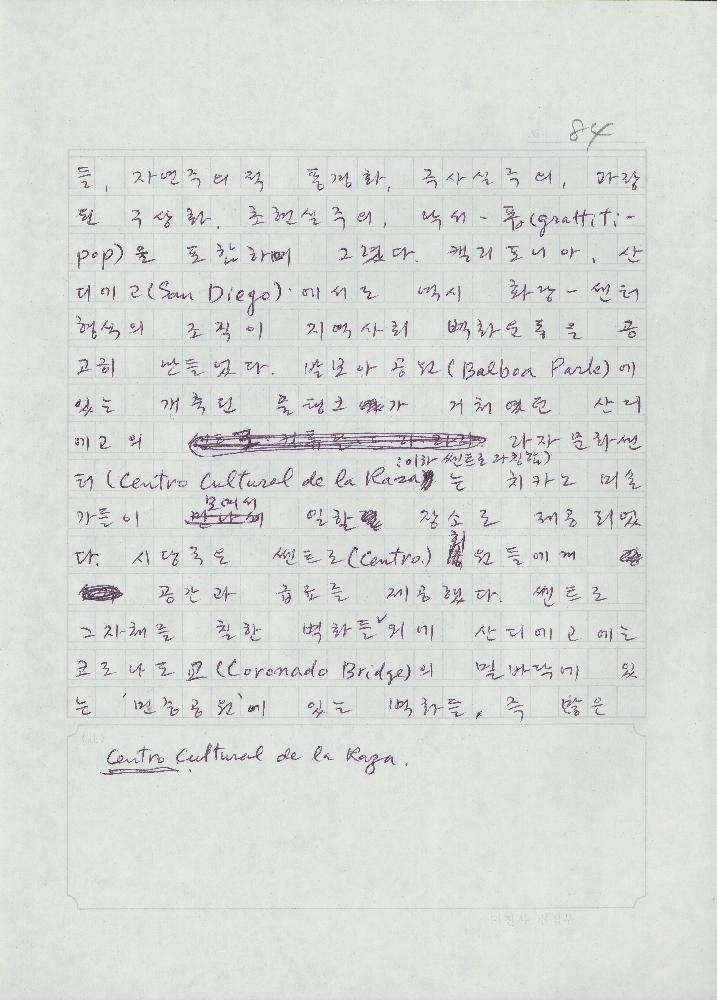 84
들, 자연주의적 풍경화, 극사실주의, 과장
된 구상화, 초현실주의, 낙서-폽(graffiti-
pop)을 포함하며 그렸다. 캘리포니아, 산
디에고(San Diego)에서도 역시 화랑-센터
형식의 조직이 지역사회 벽화운동을 공
고히 만들었다. 발보아 공원(Balboa Park)에
있는 개축된 물탱크가 거처였던 산디
에고의 라자 문화센
:이하 쎈트로라 칭함)
터(Centro Cultural de la Raza)는 치카노 미술
모여서
가들이 만나서 일할 장소로 제공되었
다. 시당국은 쎈트로(Centro) 회원들에게
공간과 급료를 제공했다. 쎈트로
그 자체를 칠한 벽화들 외에 산디에고에는
코로나도교(Coronado Bridge)의 밑바닥에 있
는 '민중공원'에 있는 벽화들, 즉 많은
Centro Cultural de la Raza.